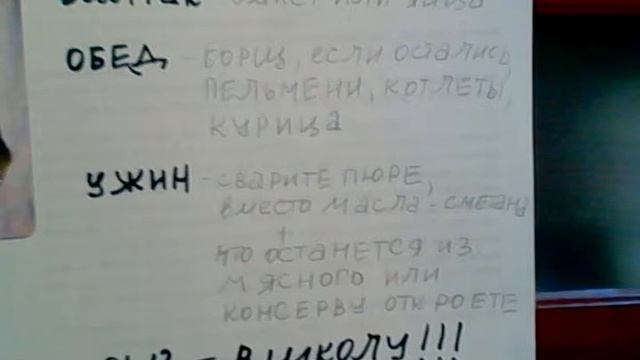 или яйца
ОБЕД - БОРЩ, если остались,
ПЕЛЬМЕНИ, КОТЛЕТЫ,
КУРИЦА
УЖИН - СВАРИТЕ ПЮРЕ,
вместо масла - сметана
+
что останется из
мясного или
консерву откроете
- в школу!!!